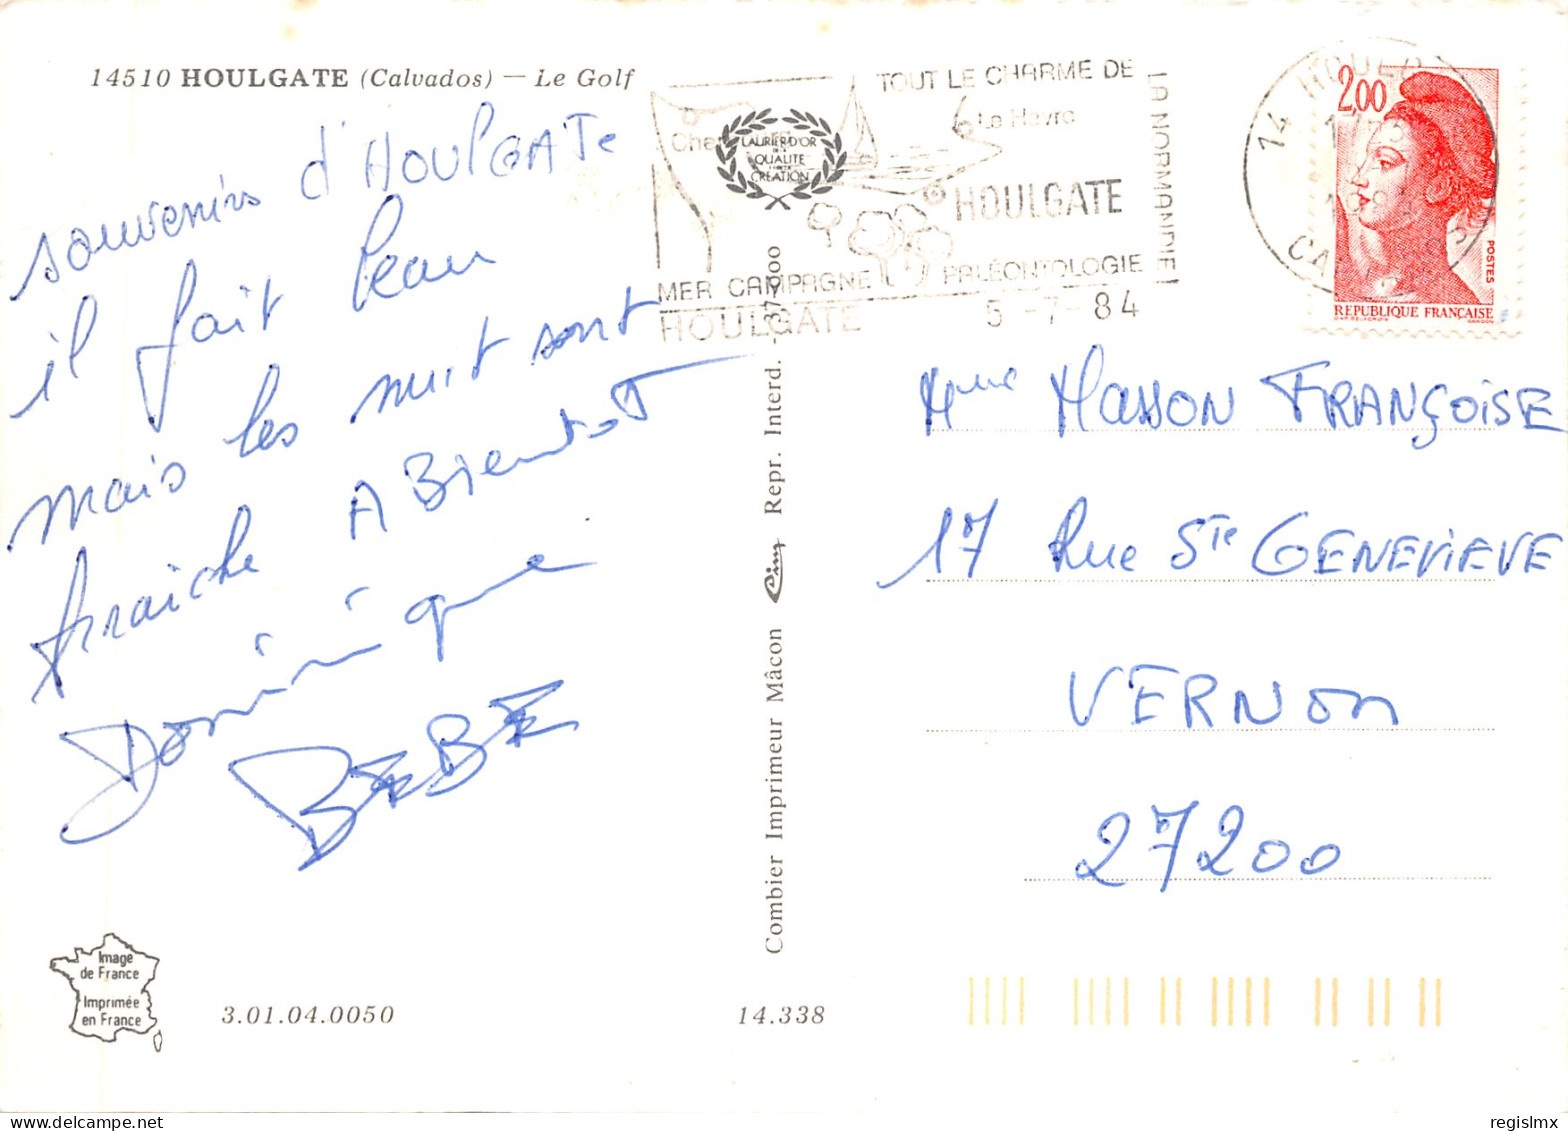 14510 HOULGATE (Calvados) — Le Golf
souvenirs d'HOULGATe
il fait beau
mais les nuit sont
fraiche A BientoT
Dominique
BEBE
Image
de France
Imprimée
en France
3.01.04.0050
14.338
Combier Imprimeur Mâcon Cim Repr. Interd. - 37000
LAURIER D'OR
DE LA
QUALITE
CREATION
TOUT LE CHARME DE
LA NORMANDIE!
Le Havre
HOULGATE
MER CAMPAGNE PALÉONTOLOGIE
HOULGATE 5-7-84
2,00
POSTES
REPUBLIQUE FRANÇAISE
Mme MASSON FRANÇOiSE
17 Rue STe GENEViEVE
VERNON
27200
regislmx